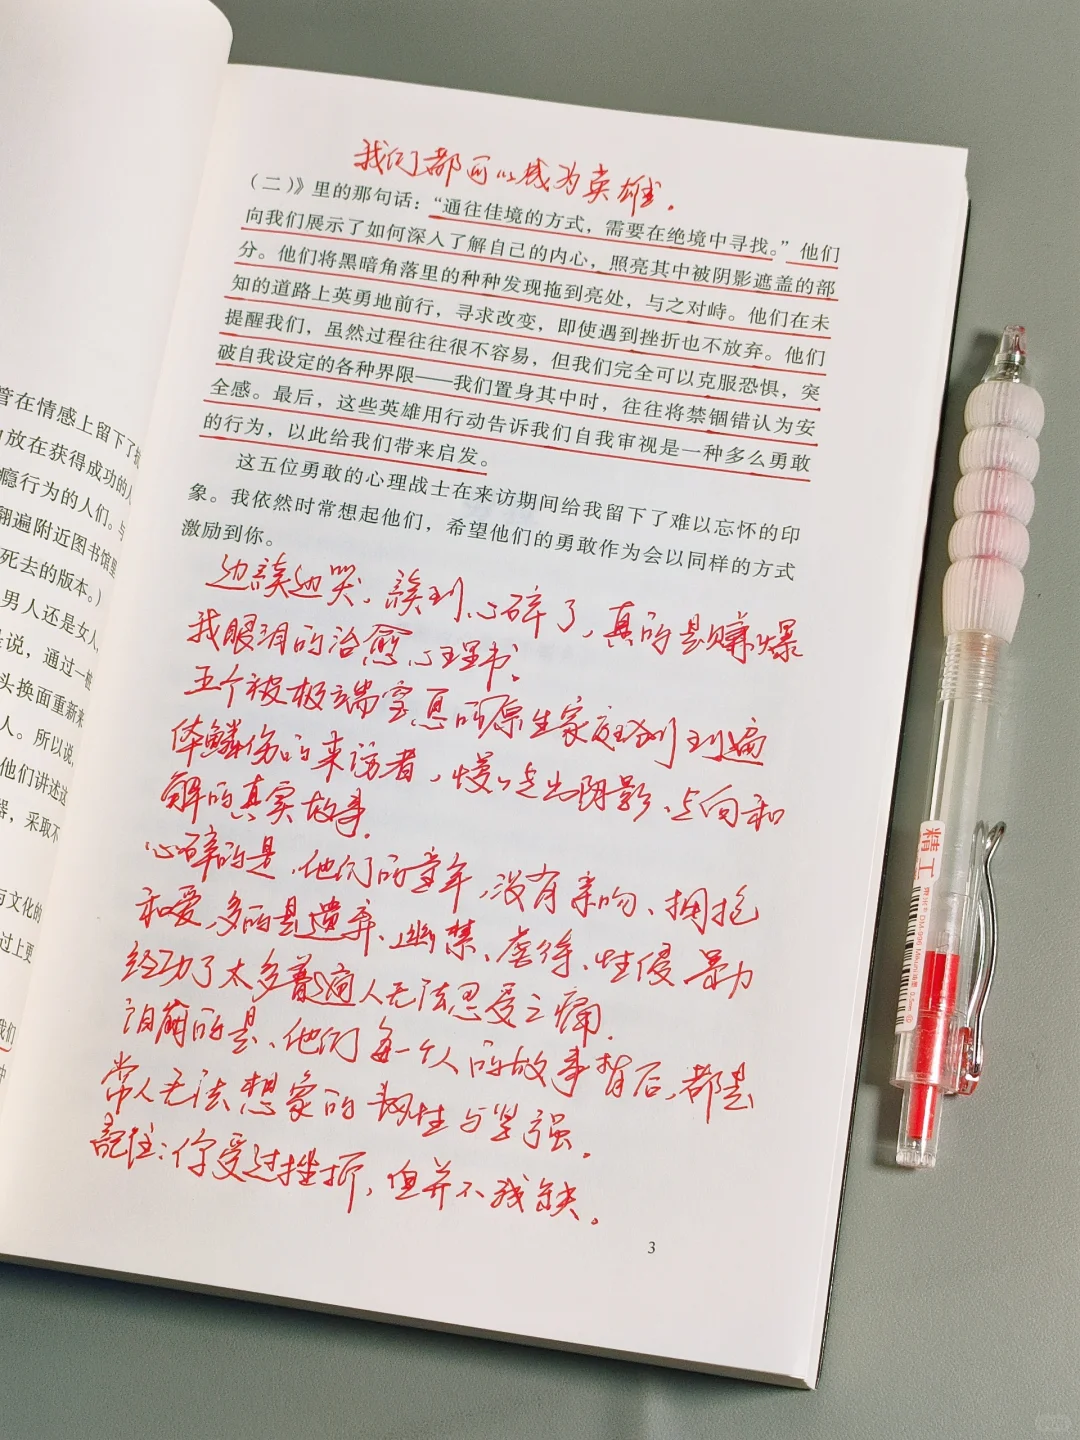 我们都可以成为英雄。
（二）》里的那句话：“通往佳境的方式，需要在绝境中寻找。”他们
向我们展示了如何深入了解自己的内心，照亮其中被阴影遮盖的部
分。他们将黑暗角落里的种种发现拖到亮处，与之对峙。他们在未
知的道路上英勇地前行，寻求改变，即使遇到挫折也不放弃。他们
提醒我们，虽然过程往往很不容易，但我们完全可以克服恐惧，突
破自我设定的各种界限——我们置身其中时，往往将禁锢错认为安
全感。最后，这些英雄用行动告诉我们自我审视是一种多么勇敢
的行为，以此给我们带来启发。
这五位勇敢的心理战士在来访期间给我留下了难以忘怀的印
象。我依然时常想起他们，希望他们的勇敢作为会以同样的方式
激励到你。
边读边哭，读到心碎了，真的是赚爆
我眼泪的治愈心理书。
五个被极端窒息的原生家庭划到遍
体鳞伤的来访者，慢慢走出阴影、走向和
解的真实故事。
心碎的是，他们的童年，没有亲吻、拥抱
和爱，多的是遗弃、幽禁、虐待、性侵、暴力
经历了太多普通人无法忍受之痛。
泪崩的是、他们每一个人的故事背后，都是
常人无法想象的韧性与坚强。
記住：你受过挫折，但并不残缺。
3
管在情感上留下了
放在获得成功的人
瘾行为的人们。与
翻遍附近图书馆里
死去的版本。）
男人还是女人，
说，通过一
头换面重新来
人。所以说，
他们讲述这
器，采取不
与文化的
过上更
我们
中
精工